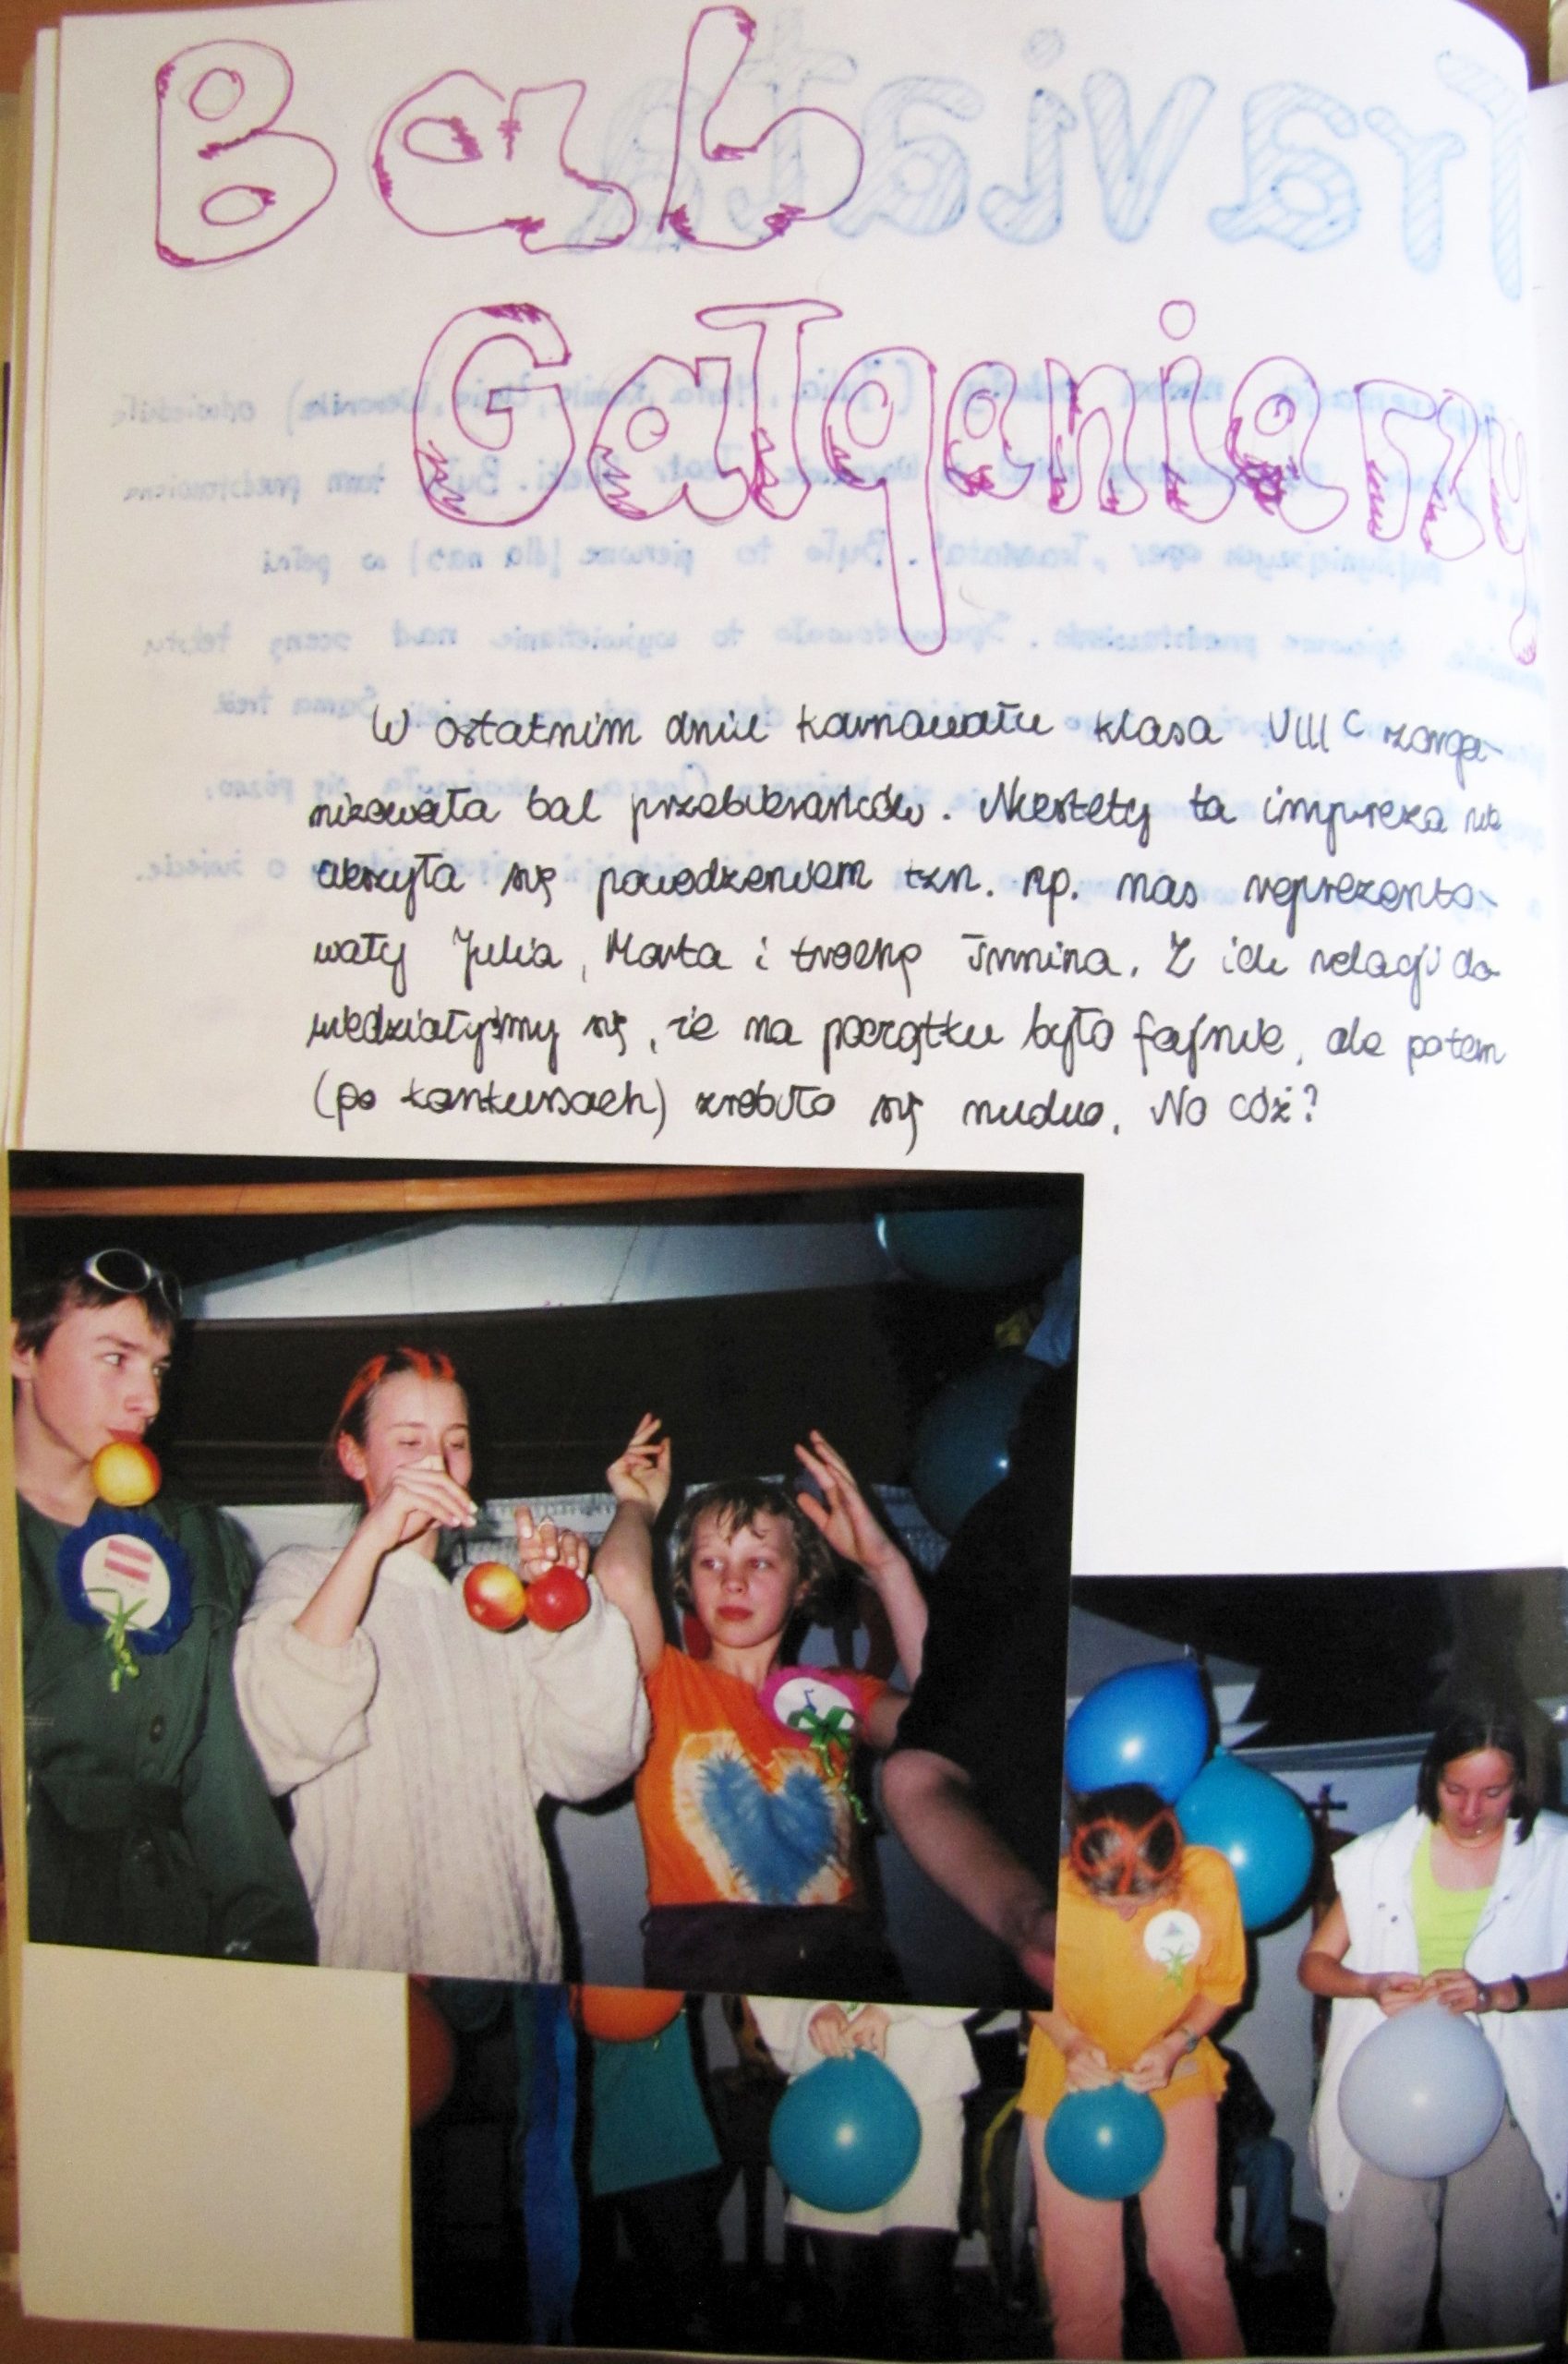 Bal
Gałganiarzy
W ostatnim dniu karnawału klasa VIII c zorga-
nizowała bal przebierańców. Niestety ta impreza nie
cieszyła się powodzeniem tzn. np. nas reprezento-
wały Julia, Marta i trochę Irmina. Z ich relacji do-
wiedziałyśmy się, że na początku było fajnie, ale potem
(po konkursach) zrobiło się nudno. No cóż?